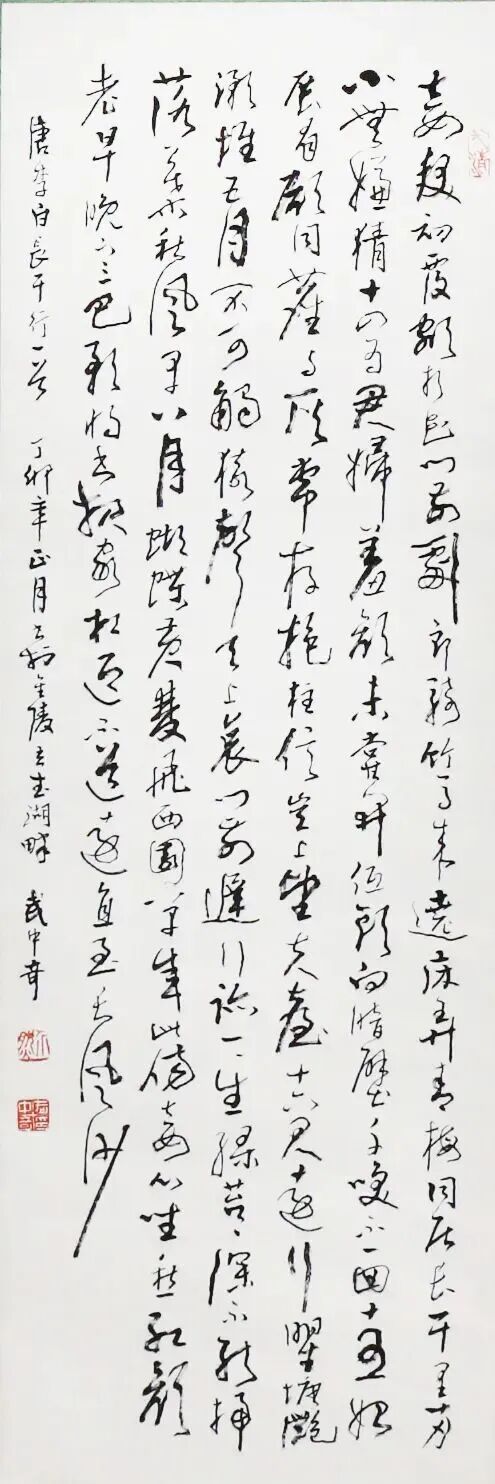 妾髮初覆額折花門前劇郎騎竹馬來遶床弄青梅同居長干里兩
小無嫌猜十四為君婦羞顏未嘗開低頭向暗壁千喚不一回十五始
展眉願同塵與灰常存抱柱信豈上望夫臺十六君遠行瞿塘灩
澦堆五月不可觸猿聲天上哀門前遲行跡一一生綠苔苔深不能掃
落葉秋風早八月蝴蝶黃雙飛西園草感此傷妾心坐愁紅顏
老早晚下三巴預將書報家相迎不道遠直至長風沙
唐李白長干行一首 丁卯年正月书於金陵玄武湖畔 武中奇